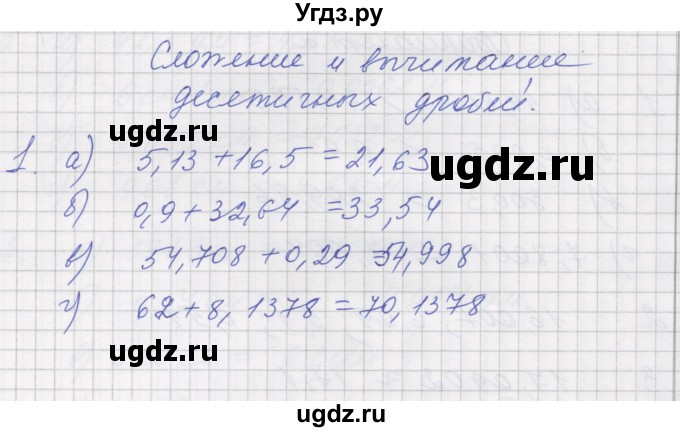 Угдз.ру
Сложение и вычитание
десятичных дробей.
1. а) 5,13 + 16,5 = 21,63
ugdz.ru ugdz.ru
б) 0,9 + 32,64 = 33,54
в) 54,708 + 0,29 = 54,998
г) 62 + 8,1378 = 70,1378
ugdz.ru ugdz.ru
ugdz.ru